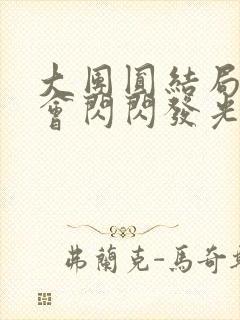 大團圓結局
會閃閃發光
弗蘭克-馬奇